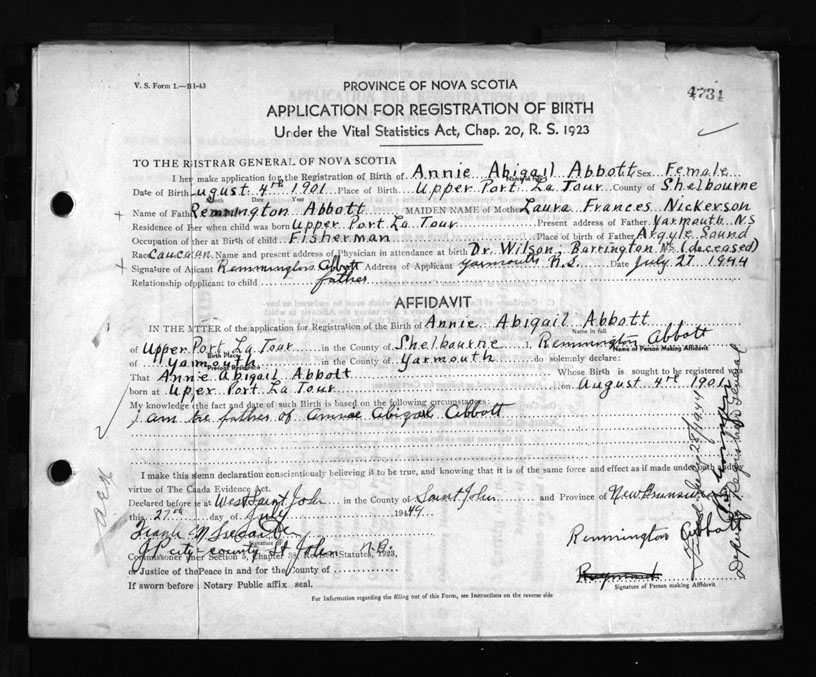 V. S. Form 1.—B1-43
PROVINCE OF NOVA SCOTIA
4731
APPLICATION FOR REGISTRATION OF BIRTH
Under the Vital Statistics Act, Chap. 20, R. S. 1923
TO THE RISTRAR GENERAL OF NOVA SCOTIA
I her make application for the Registration of Birth of Annie Abigail Abbott Sex Female
Date of Birth ugust 4th 1901 Place of Birth Upper Port La Tour County of Shelbourne
Name of Fath Remmington Abbott MAIDEN NAME of Mother Laura Frances Nickerson
Residence of her when child was born Upper Port La Tour Present address of Father Yarmouth N.S
Occupation of ther at Birth of child Fisherman Place of Birth of Father Argyle Sound
Rac Caucaian Name and present address of Physician in attendance at birth Dr. Wilson, Barrington N.S (deceased)
Signature of Aicant Remmington Abbott Address of Applicant Yarmouth N.S. Date July 27 1944
Relationship of plicant to child father
AFFIDAVIT
IN THE MTTER of the application for Registration of the Birth of Annie Abigail Abbott
Name in full
of Upper Port La Tour in the County of Shelbourne I, Remmington Abbott
Birth Place Name of Person Making Affidavit
of Yarmouth in the County of Yarmouth do solemnly declare:
Present Residence
That Annie Abigail Abbott Whose Birth is sought to be registered was
born at Upper Port La Tour on August 4th 1901
My knowledge of the fact and date of such Birth is based on the following circumstances:
I am the father of Annie Abigail Abbott
I make this slemn declaration conscientiously believing it to be true, and knowing that it is of the same force and effect as if made under oath and
virtue of The Caada Evidence Act.
Declared before me at West Saint John in the County of Saint John and Province of New Brunswick
this 27th day of July 1944
Remmington Abbott
J P City-County St John N.B.
Commissioner under Section 3, Chapter 38, Revised Statutes, 1923,
or Justice of the Peace in and for the County of
Signature of Person making Affidavit
If sworn before Notary Public affix seal.
For Information regarding the filling out of this Form, see Instructions on the reverse side
Deputy Registrar General